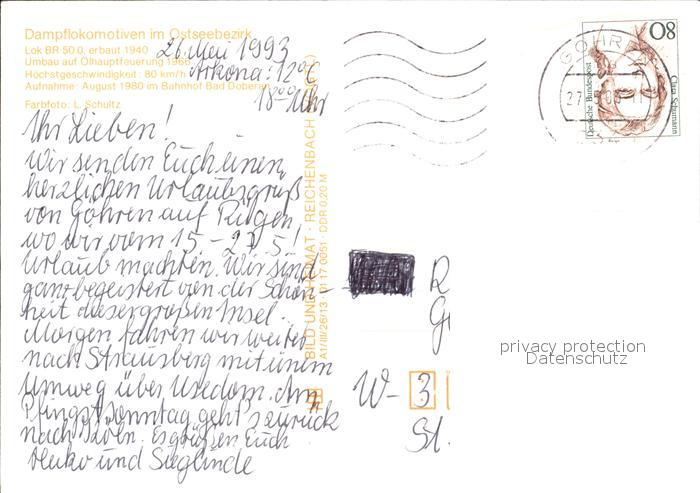 Dampflokomotiven im Ostseebezirk
Lok BR 50.0, erbaut 1940
Umbau auf Ölhauptfeuerung 1966
Höchstgeschwindigkeit: 80 km/h
Aufnahme: August 1980 im Bahnhof Bad Doberan
Farbfoto: L. Schultz
26. Mai 1993
Arkona: 12°C
18°° Uhr
Ihr Lieben!
Wir senden Euch einen
herzlichen Urlaubsgruß
von Göhren auf Rügen,
wo wir vom 15.-27.5!
Urlaub machten. Wir sind
ganz begeistert von der Schön-
heit dieser großen Insel.
Morgen fahren wir weiter
nach Strausberg mit einem
Umweg über Usedom. Am
Pfingstsonntag geht's zurück
nach Es grüßen Euch
Heiko und Sieglinde
BILD UND HEIMAT · REICHENBACH
A1/III/26/13 01 17 0051 · DDR 0,20 M
GÖHREN
27
80
Deutsche Bundespost
Clara Schumann
W-3
St.
privacy protection
Datenschutz